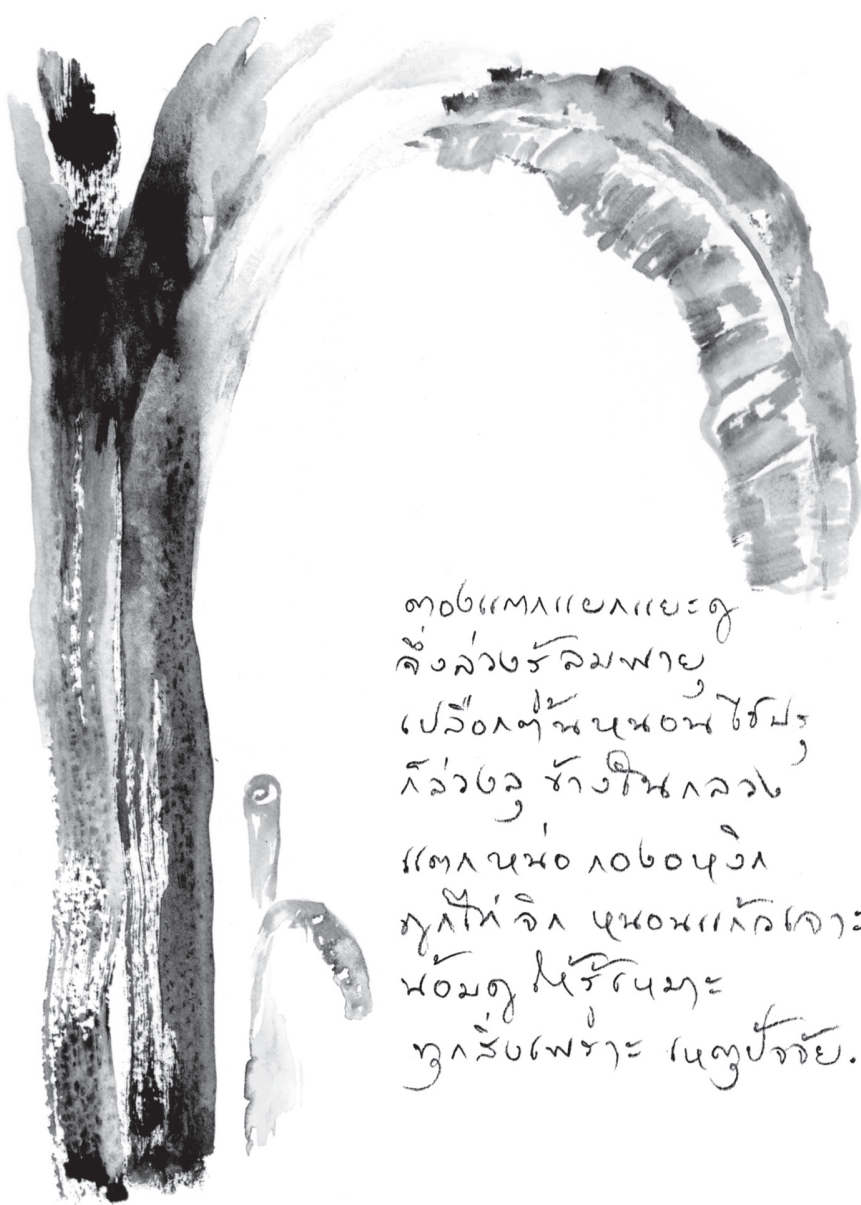 ตองแตกแยกแยะดู
จึ่งล่วงรู้ลมพายุ
เปลือกต้นหนอนไชปรุ
ก็ล่วงลุข้างในกลวง
แตกหน่อ กองอหงิก
ถูกไก่จิก หนอนแก้วเจาะ
น้อมดูให้รู้เหมาะ
ทุกสิ่งเพราะ เหตุปัจจัย.